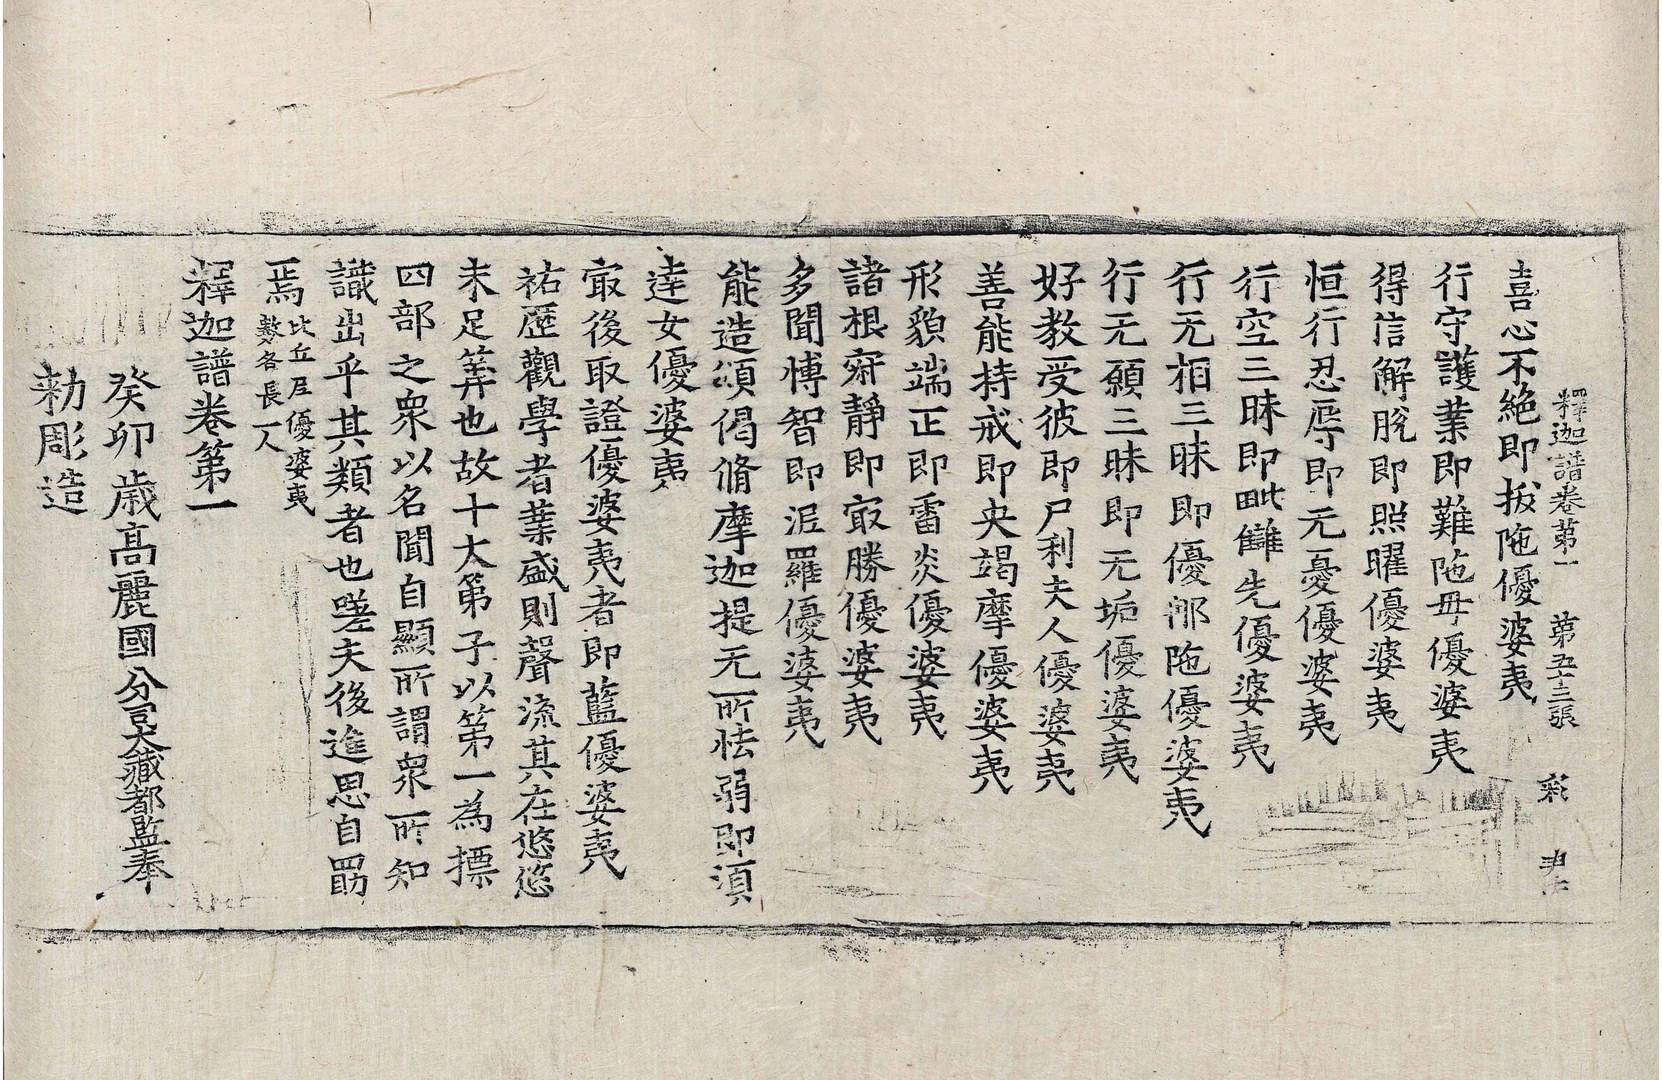 釋迦譜卷第一　第五十三張　彩
喜心不絶即拔陁優婆夷
行守護業即難陁毋優婆夷
得信解脫即照曜優婆夷
恒行忍辱即无憂優婆夷
行空三昧即毗讎先優婆夷
行无相三昧即優那陁優婆夷
行无願三昧即无垢優婆夷
好教受彼即尸利夫人優婆夷
善能持戒即央竭摩優婆夷
形貌端正即雷炎優婆夷
諸根寂靜即㝡勝優婆夷
多聞博智即泥羅優婆夷
能造頌偈脩摩迦提无所怯弱即湏
達女優婆夷
㝡後取證優婆夷者即藍優婆夷
祐歷觀學者葉盛則聲流其在悠悠
未足筭也故十大第子以第一為摽
四部之衆以名聞自顯所謂衆所知
識出乎其類者也嗟夫後進思自勗
焉比丘尼優婆夷數各長一人
釋迦譜卷第一
癸卯歲高麗國分司大藏都監奉
勑彫造